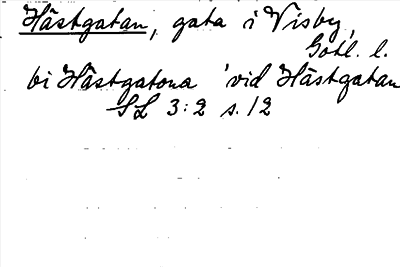 Hästgatan, gata i Visby,
Gotl. l.
bi Hästgatona 'vid Hästgatan
SL 3:2 s. 12